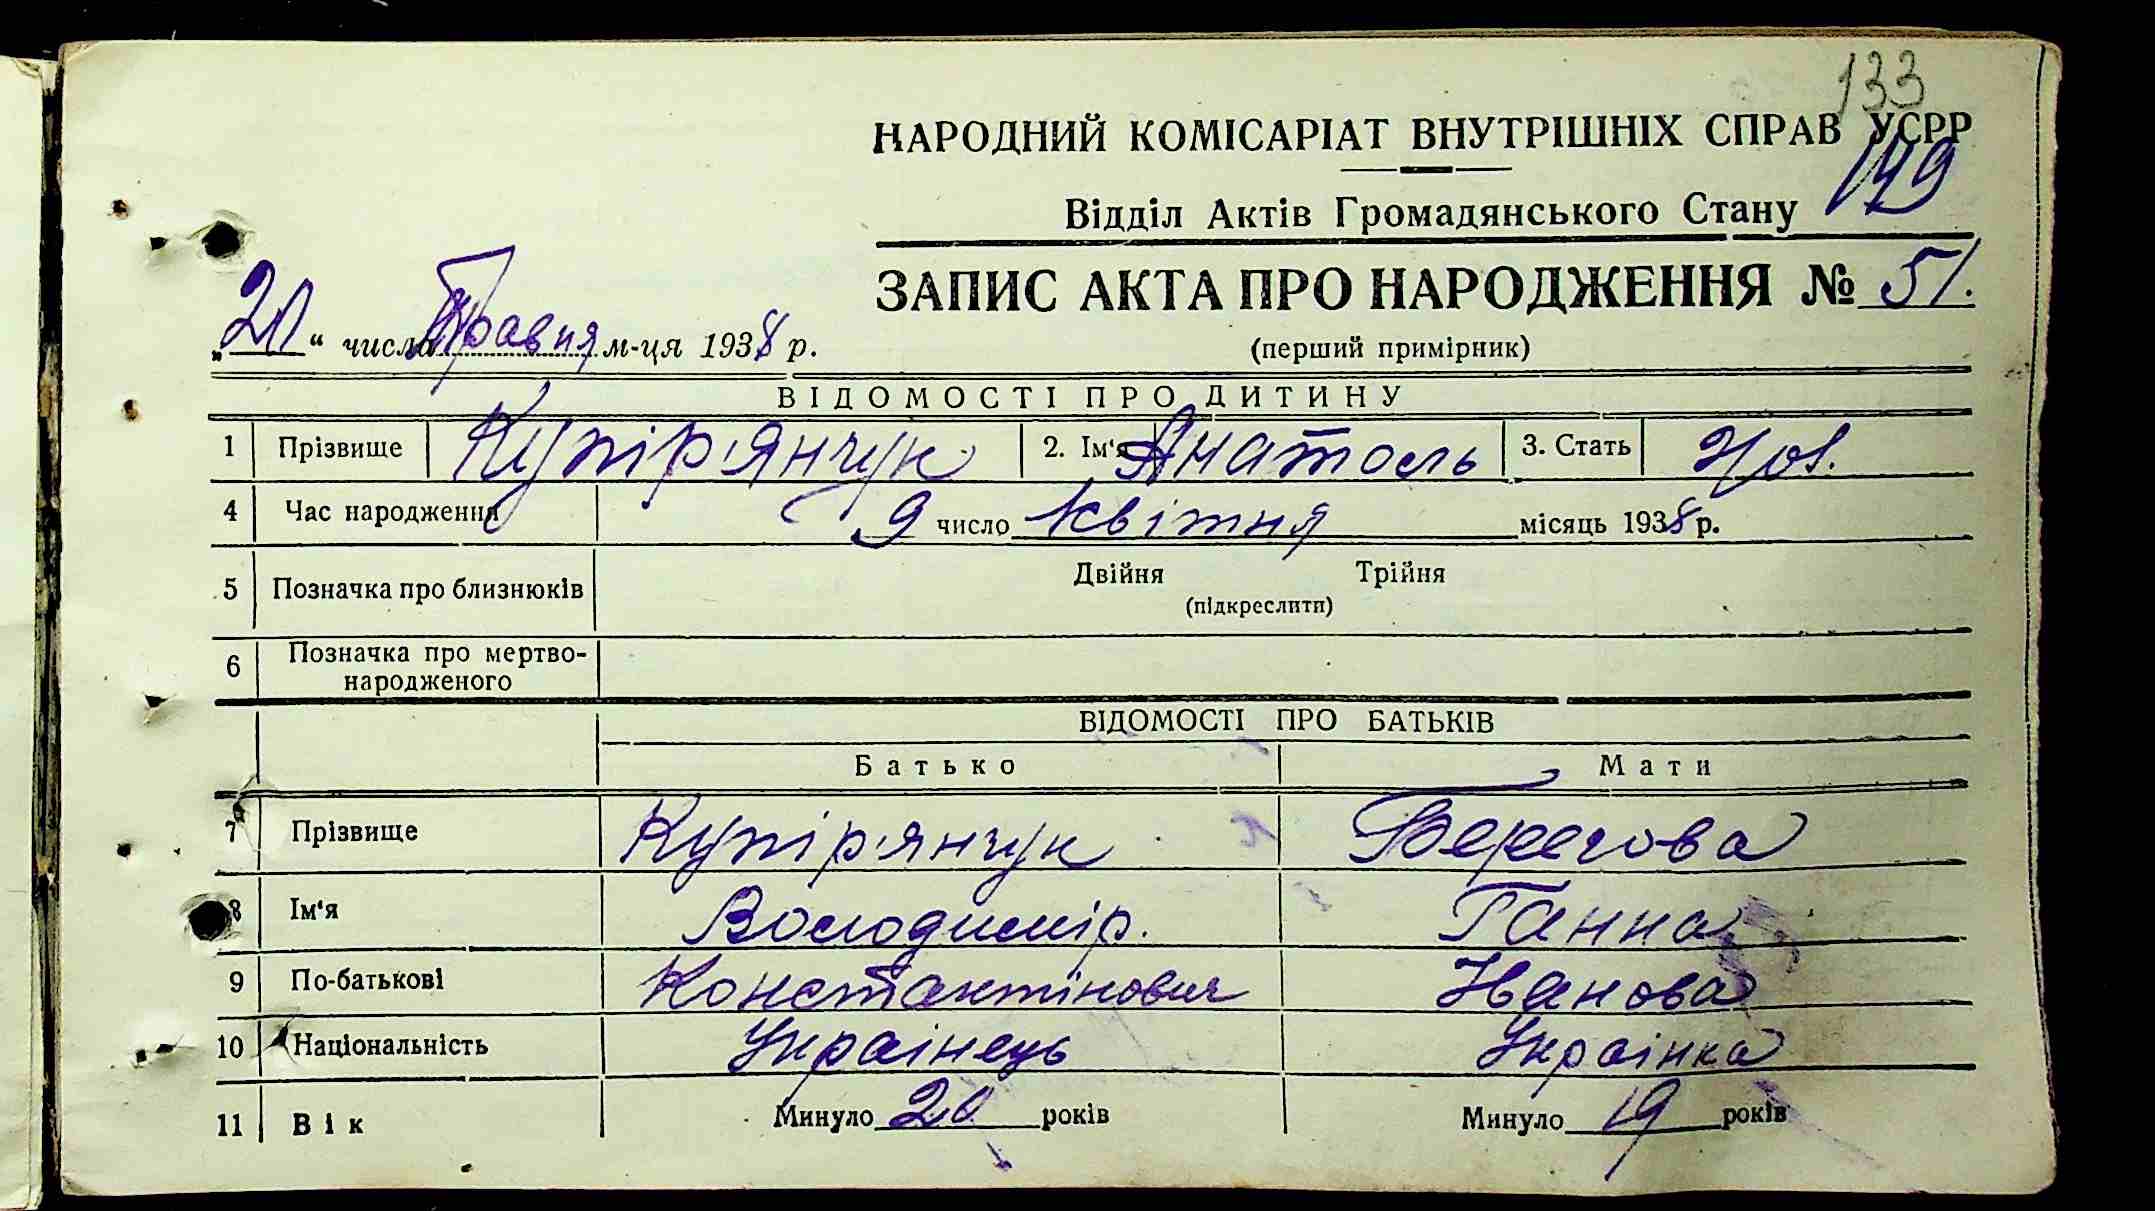 133
НАРОДНИЙ КОМІСАРІАТ ВНУТРІШНІХ СПРАВ УСРР
149
Відділ Актів Громадянського Стану
ЗАПИС АКТА ПРО НАРОДЖЕННЯ № 51.
„20“ числа Травня м-ця 1938 р.
(перший примірник)
ВІДОМОСТІ ПРО ДИТИНУ
1 Прізвище Купір'янчук 2. Ім‘я Анатоль 3. Стать Чол.
4 Час народження 9 число квітня місяць 1938 р.
5 Позначка про близнюків Двійня Трійня
(підкреслити)
6 Позначка про мертво-
народженого
ВІДОМОСТІ ПРО БАТЬКІВ
Батько Мати
7 Прізвище Купір'янчук Берегова
8 Ім‘я Володимір. Ганна
9 По-батькові Константінович Іванова
10 Національність Українець Українка
11 Вік Минуло 20 років Минуло 19 років